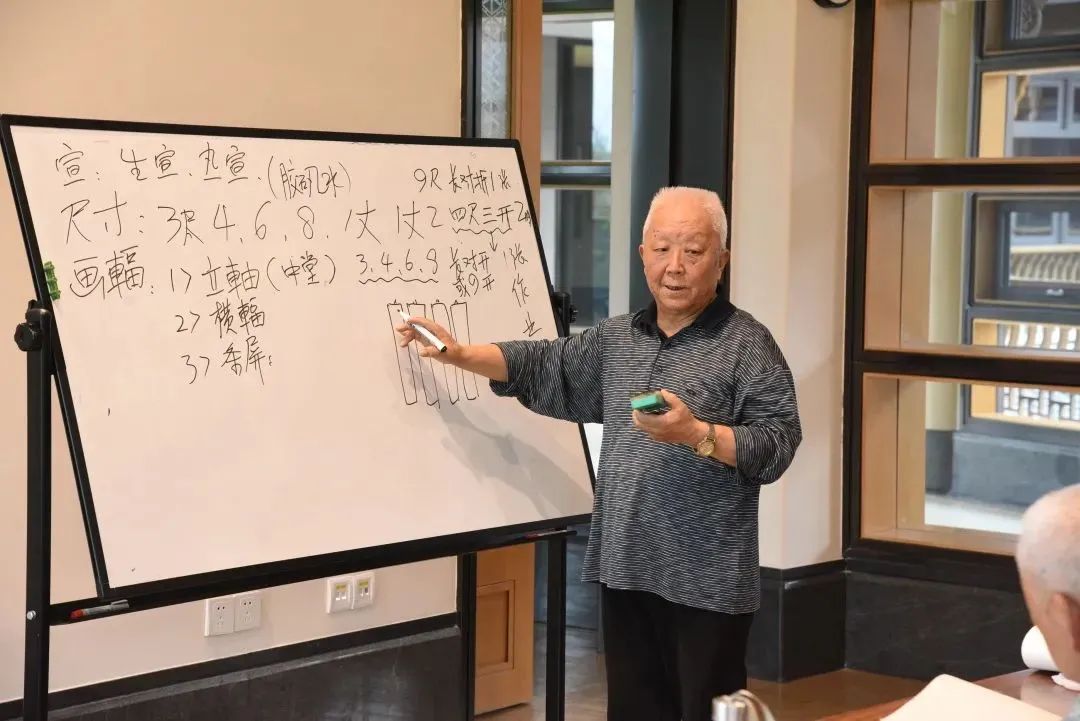 宣：生宣、丸宣、(胶矾水)
9尺 长对折1张
尺寸：3尺 4、6、8、1丈 1丈2 四尺三开2
画輻：1> 立軸(中堂) 3、4、6、8 长对开 1张
或四开
2> 横輻
3> 条屏：